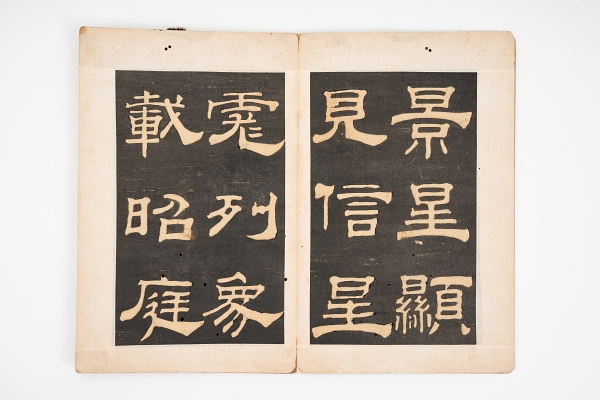 景星顯
見信星
彪列象
載昭庭